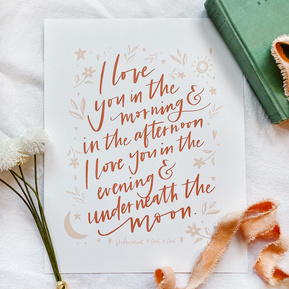 I love
you in the
morning &
in the afternoon
I love you in the
evening &
underneath the
moon.